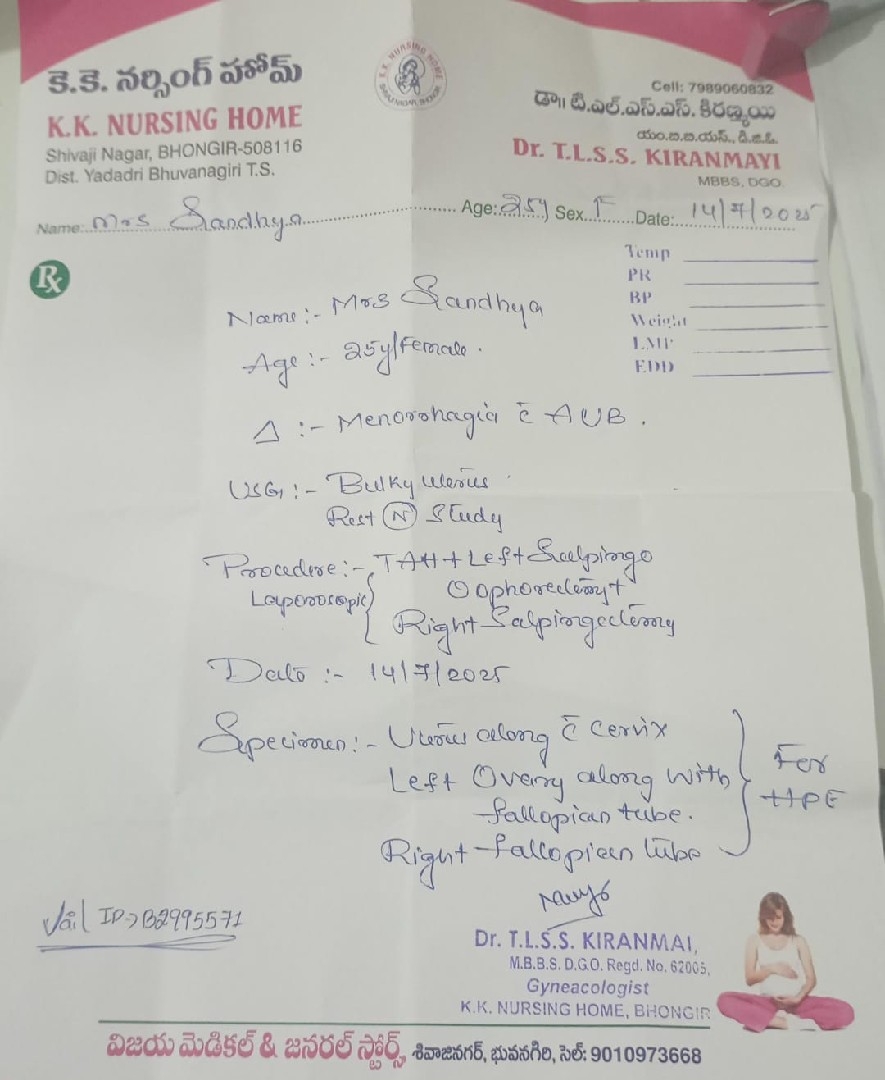 కె.కె. నర్సింగ్ హోమ్
K.K. NURSING HOME
Shivaji Nagar, BHONGIR-508116
Dist. Yadadri Bhuvanagiri T.S.
K.K. NURSING HOME
Cell: 7989060832
డా॥ టి.ఎల్.ఎస్.ఎస్. కిరణ్మయి
యం.బి.బి.యస్., డి.జి.ఓ.
Dr. T.L.S.S. KIRANMAYI
MBBS, DGO
Name: Mrs Sandhya Age: 25y Sex F Date: 14/7/2025
Rx
Temp
PR
BP
Weight
LMP
EDD
Name :- Mrs Sandhya
Age :- 25y/female.
Δ :- Menorohagia c̄ AUB.
USG :- Bulky uterus
Rest (N) Study
Procedure :- TAH + Left Salpingo
Laparoscopic Oophorectomy +
Right Salpingectomy
Date :- 14/7/2025
Specimen :- Uterus along c̄ cervix
Left Ovary along with
fallopian tube.
Right fallopian tube
For
HPE
Vail ID→B2995571
Dr. T.L.S.S. KIRANMAI,
M.B.B.S. D.G.O. Regd. No. 62005,
Gyneacologist
K.K. NURSING HOME, BHONGIR
విజయ మెడికల్ & జనరల్ స్టోర్స్ శివాజినగర్, భువనగిరి, సెల్: 9010973668